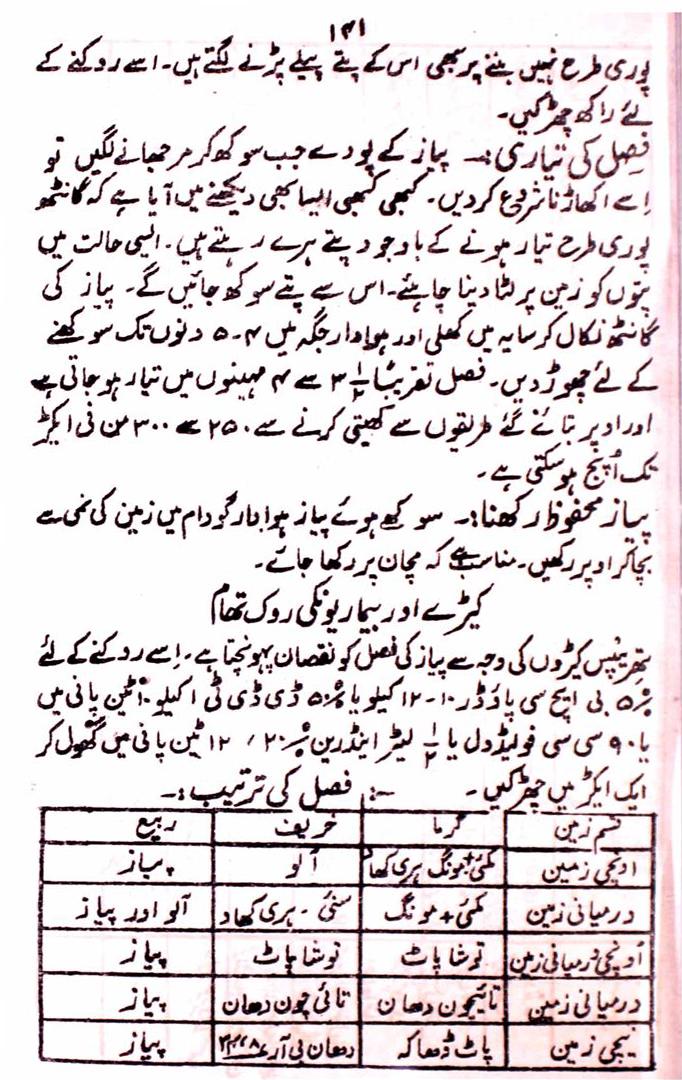 ۱۳۱
پوری طرح نہیں بننے پر بھی اس کے پتے پیلے پڑنے لگتے ہیں۔ اسے روکنے کے
لئے راکھ چھڑکیں۔
فصل کی تیاری:۔ پیاز کے پودے جب سوکھ کر مرجھانے لگیں تو
اِسے اکھاڑنا شروع کردیں۔ کبھی کبھی ایسا بھی دیکھنے میں آیا ہے کہ گانٹھ
پوری طرح تیار ہونے کے باوجود پتے ہرے رہتے ہیں۔ ایسی حالت میں
پتوں کو زمین پر لٹا دینا چاہئے۔ اس سے پتے سوکھ جائیں گے۔ پیاز کی
گانٹھ نکال کر سایہ میں کھلی اور ہوادار جگہ میں ۴-۵ دنوں تک سوکھنے
کے لئے چھوڑ دیں۔ فصل تقریباً ۳½ سے ۴ مہینوں میں تیار ہوجاتی ہے
اور اوپر بتائے گئے طریقوں سے کھیتی کرنے سے ۲۵۰ سے ۳۰۰ من فی ایکڑ
تک اُپج ہوسکتی ہے۔
پیاز محفوظ رکھنا:۔ سوکھے ہوئے پیاز ہوادار گودام میں زمین کی نمی سے
بچاکر اوپر رکھیں۔ مناسب ہے کہ مچان پر رکھا جائے۔
کیڑے اور بیماریونکی روک تھام
تھرپس کیڑوں کی وجہ سے پیاز کی فصل کو نقصان پہونچتا ہے۔ اِسے روکنے کے لئے
۵٪ بی ایچ سی پاؤڈر ۱۰-۱۲ کیلو یا ۵۰٪ ڈی ڈی ٹی ۱ کیلو ۱۰ ٹین پانی میں
یا ۹۰ سی سی فولیڈول یا ½ لیٹر اینڈرین ۲۰٪ / ۱۲ ٹین پانی میں گھول کر
ایک ایکڑ میں چھڑکیں۔ :۔ فصل کی ترتیب:۔
قسم زمین گرما خریف ربیع
اونچی زمین مکئی+مونگ ہری کھاد آلو پیاز
درمیانی زمین مکئی+مونگ سنئی - ہری کھاد آلو اور پیاز
اُونچی درمیانی زمین توشا پاٹ توشا پاٹ پیاز
درمیانی زمین تائیچون دھان تائی چون دھان پیاز
نیچی زمین پاٹ ڈھاکہ دھان بی آر پیاز